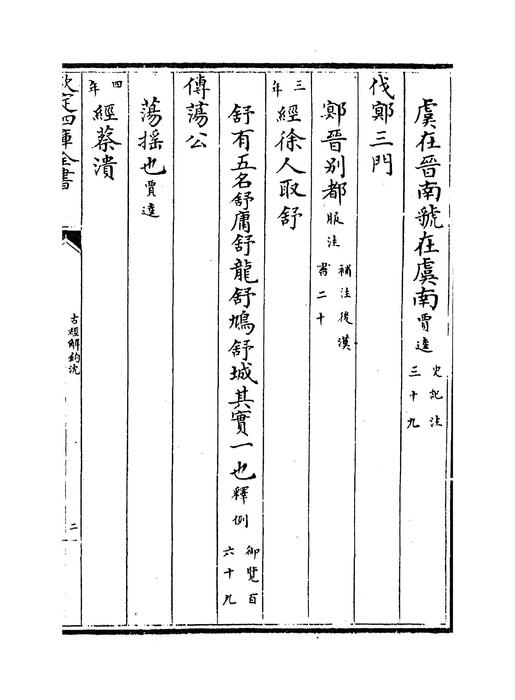 虞在晉南虢在虞南賈逵史記注三十九
伐鄍三門
鄍晉別都服注補注後漢書二十
三年經徐人取舒
舒有五名舒庸舒龍舒鳩舒城其實一也釋例御覽百六十九
傳蕩公
蕩搖也賈逵
四年經蔡潰
欽定四庫全書
古經解鉤沈
二